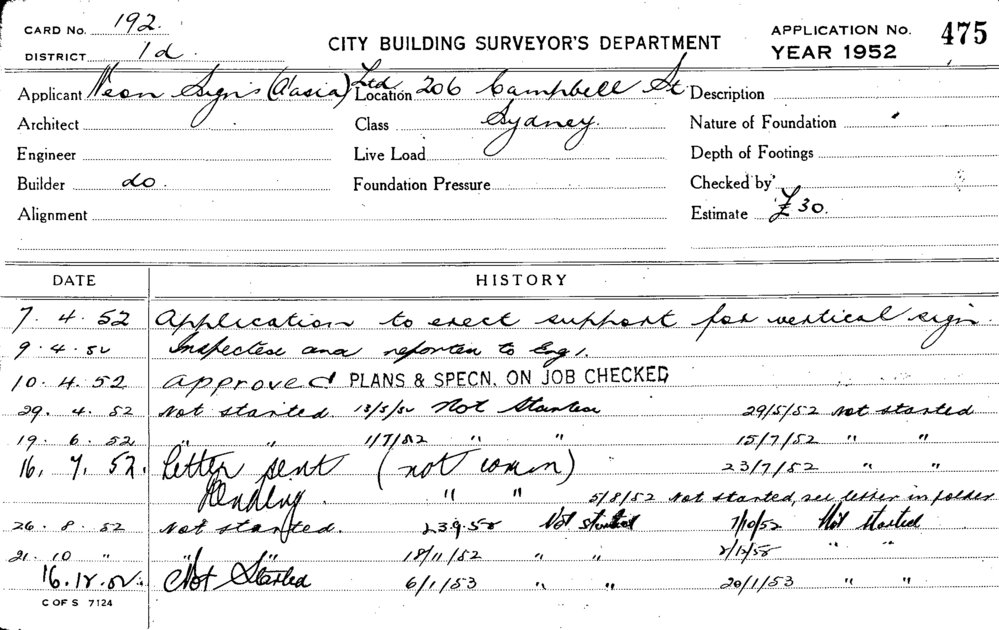 CARD No. 192.
DISTRICT 1d.
CITY BUILDING SURVEYOR'S DEPARTMENT
APPLICATION No. 475
YEAR 1952
Applicant Neon Signs (A'asia) Ltd Location 206 Campbell St Description
Architect Class Sydney. Nature of Foundation
Engineer Live Load Depth of Footings
Builder do. Foundation Pressure Checked by
Alignment Estimate £30.
DATE HISTORY
7. 4. 52 Application to erect support for vertical sign.
9. 4. 52 Inspected and reported to Eng.
10. 4. 52 Approved PLANS & SPECN. ON JOB CHECKED
29. 4. 52 Not started. 13/5/52 Not Started 29/5/52 Not started
19. 6. 52 " " 1/7/52 " " 15/7/52 " "
16. 7. 52. Letter sent (not ) 23/7/52 " "
Pending. " " 5/8/52 Not started, see letter in folder
26. 8. 52 Not started. 23.9.52 Not started 7/10/52 Not started
21. 10 " " " 18/11/52 " " 2/12/52 " "
16.12.52. Not Started 6/1/53 " " 20/1/53 " "
C OF S 7124